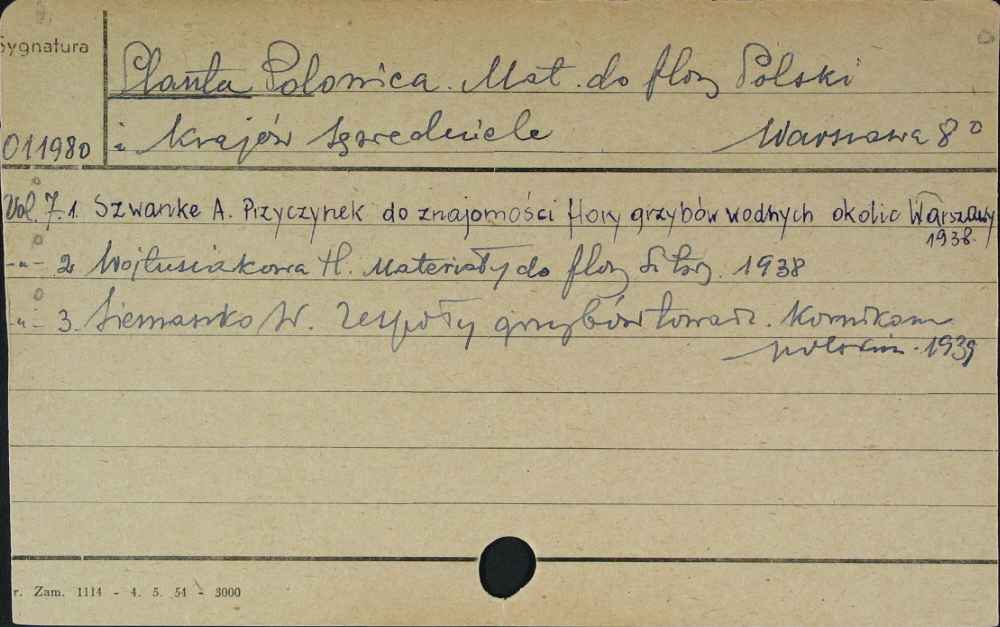 Sygnatura
Planta Polonica. Mat. do flory Polski
011980 i Krajów sąsiednich Warszawa 8°
Vol. 7.1. Szwanke A. Przyczynek do znajomości flory grzybów wodnych okolic Warszawy
1938.
-"- 2 Wojtusiakowa H. Materiały do flory 1938
-"- 3. Siemaszko W. Zespoły grzybów towarz. Kornikom
polskim. 1939
r. Zam. 1114 - 4. 5. 54 - 3000